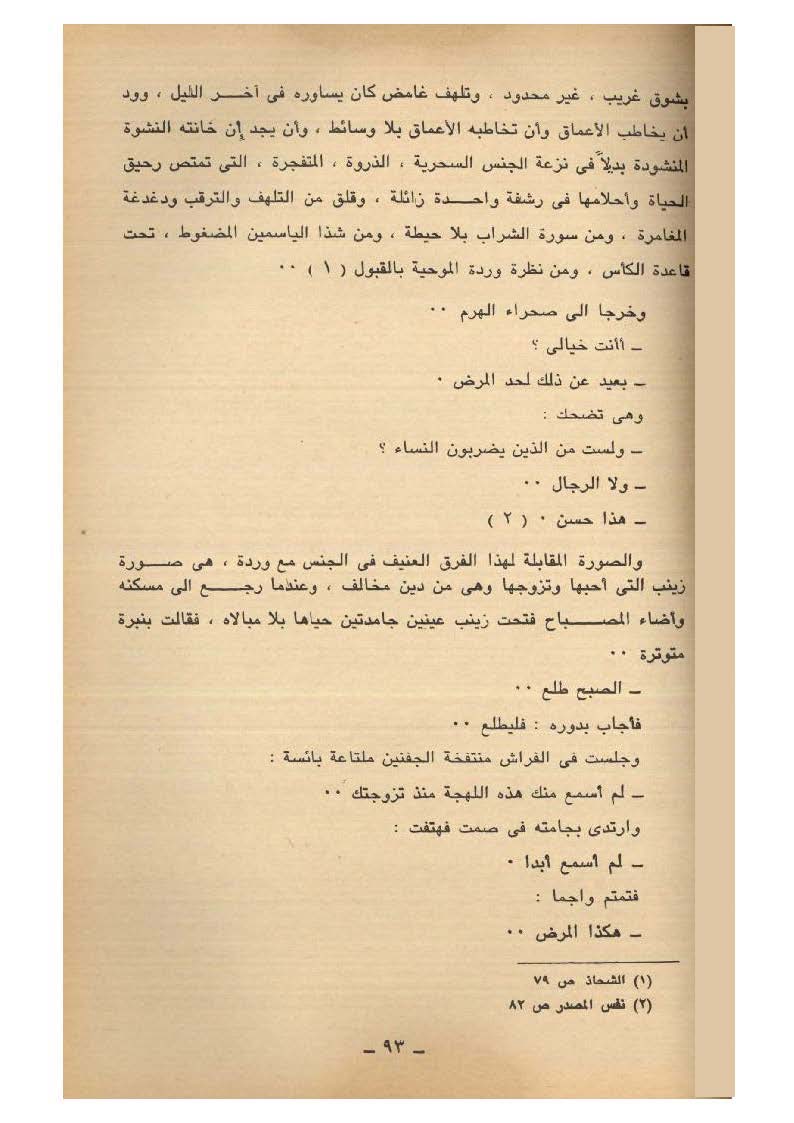 بشوق غريب ، غير محدود ، وتلهف غامض كان يساوره فى آخـــر الليل ، وود
أن يخاطب الأعماق وأن تخاطبه الأعماق بلا وسائط ، وأن يجد إن خانته النشوة
المنشودة بديلاً فى نزعة الجنس السحرية ، الذروة ، المتفجرة ، التى تمتص رحيق
الحياة وأحلامها فى رشفة واحـــدة زائلة ، وقلق من التلهف والترقب ودغدغة
المغامرة ، ومن سورة الشراب بلا حيطة ، ومن شذا الياسمين المضغوط ، تحت
قاعدة الكأس ، ومن نظرة وردة الموحية بالقبول ( ١ ) ٠٠
وخرجا الى صحراء الهرم ٠٠
ـ أأنت خيالى ؟
ـ بعيد عن ذلك لحد المرض ٠
وهى تضحك :
ـ ولست من الذين يضربون النساء ؟
ـ ولا الرجال ٠٠
ـ هذا حسن ٠ ( ٢ )
والصورة المقابلة لهذا الفرق العنيف فى الجنس مع وردة ، هى صـــورة
زينب التى أحبها وتزوجها وهى من دين مخالف ، وعندما رجـــع الى مسكنه
وأضاء المصـــباح فتحت زينب عينين جامدتين حياها بلا مبالاه ، فقالت بنبرة
متوترة ٠٠
ـ الصبح طلع ٠٠
فأجاب بدوره : فليطلع ٠٠
وجلست فى الفراش منتفخة الجفنين ملتاعة بائسة :
ـ لم أسمع منك هذه اللهجة منذ تزوجتك ٠٠
وارتدى بجامته فى صمت فهتفت :
ـ لم أسمع أبدا ٠
فتمتم واجما :
ـ هكذا المرض ٠٠
(١) الشحاذ ص ٧٩
(٢) نفس المصدر ص ٨٢
ـ ٩٣ ـ